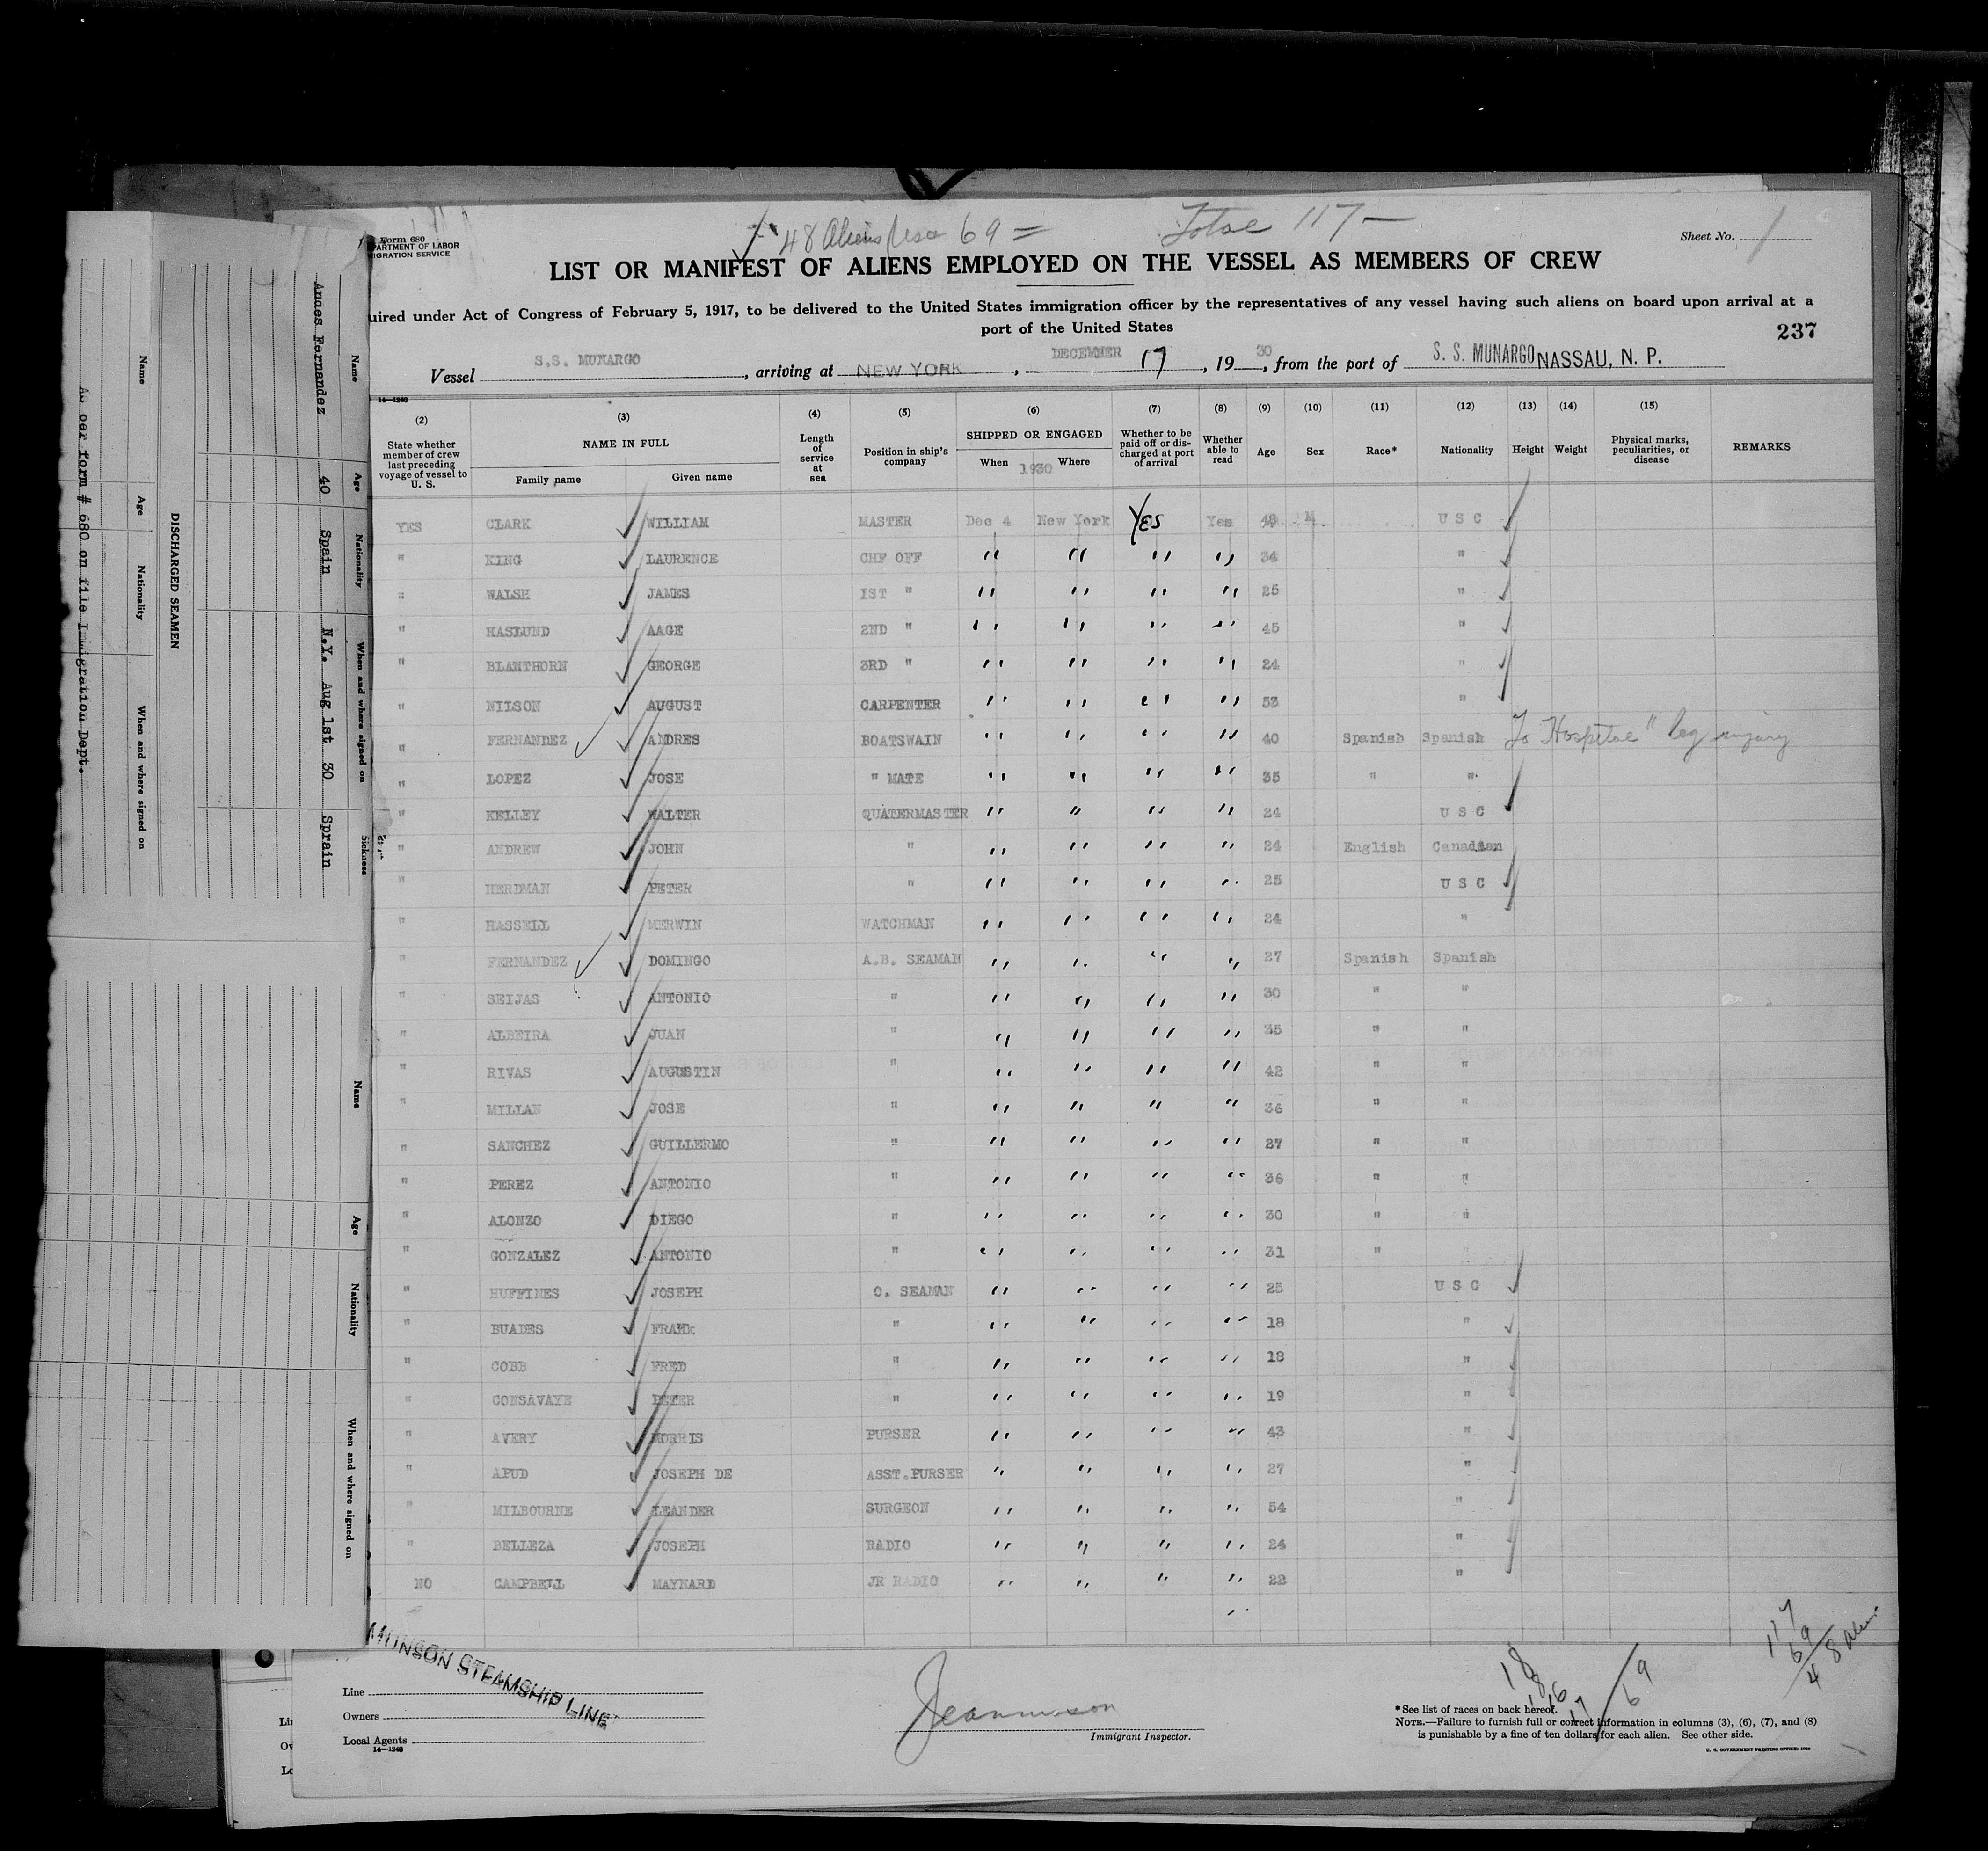 48 Aliens usa 69 = Total 117 —
Form 680
DEPARTMENT OF LABOR
IMMIGRATION SERVICE
Sheet No. 1
LIST OR MANIFEST OF ALIENS EMPLOYED ON THE VESSEL AS MEMBERS OF CREW
uired under Act of Congress of February 5, 1917, to be delivered to the United States immigration officer by the representatives of any vessel having such aliens on board upon arrival at a
port of the United States
237
Vessel S.S. MUNARGO, arriving at NEW YORK, DECEMBER 17, 1930, from the port of S. S. MUNARGO NASSAU, N. P.
14—1240
(2) (3) (4) (5) (6) (7) (8) (9) (10) (11) (12) (13) (14) (15)
State whether member of crew last preceding voyage of vessel to U. S. | NAME IN FULL Family name Given name | Length of service at sea | Position in ship's company | SHIPPED OR ENGAGED When 1930 Where | Whether to be paid off or discharged at port of arrival | Whether able to read | Age | Sex | Race* | Nationality | Height | Weight | Physical marks, peculiarities, or disease | REMARKS
YES CLARK WILLIAM MASTER Dec 4 New York Yes Yes 49 M U S C
" KING LAURENCE CHF OFF " " " " 34 "
" WALSH JAMES 1ST " " " " " 25 "
" HASLUND AAGE 2ND " " " " " 45 "
" BLANTHORN GEORGE 3RD " " " " " 24 "
" NILSON AUGUST CARPENTER " " " " 53 "
" FERNANDEZ ANDRES BOATSWAIN " " " " 40 Spanish Spanish To Hospital " leg injury
" LOPEZ JOSE " MATE " " " " 35 " "
" KELLEY WALTER QUATERMASTER " " " " 24 U S C
" ANDREW JOHN " " " " " 24 English Canadian
" HERDMAN PETER " " " " " 25 U S C
" HASSELL MERWIN WATCHMAN " " " " 24 "
" FERNANDEZ DOMINGO A.B. SEAMAN " " " " 27 Spanish Spanish
" SEIJAS ANTONIO " " " " " 30 " "
" ALBEIRA JUAN " " " " " 35 " "
" RIVAS AUGUSTIN " " " " " 42 " "
" MILLAN JOSE " " " " " 36 " "
" SANCHEZ GUILLERMO " " " " " 27 " "
" PEREZ ANTONIO " " " " " 36 " "
" ALONZO DIEGO " " " " " 30 " "
" GONZALEZ ANTONIO " " " " " 31 "
" HUFFINES JOSEPH O. SEAMAN " " " " 25 U S C
" BUADES FRANk " " " " " 18 "
" COBB FRED " " " " " 18 "
" CONSAVAYE PETER " " " " " 19 "
" AVERY MORRIS PURSER " " " " 43 "
" APUD JOSEPH DE ASST.PURSER " " " " 27 "
" MILBOURNE LEANDER SURGEON " " " " 54 "
" BELLEZA JOSEPH RADIO " " " " 24 "
NO CAMPBELL MAYNARD JR RADIO " " " " 22 "
MUNSON STEAMSHIP LINE
Line
Owners
Local Agents
14—1240
Immigrant Inspector.
117
69
48 Alien
18
18
16
17
69
*See list of races on back hereof.
NOTE.—Failure to furnish full or correct information in columns (3), (6), (7), and (8)
is punishable by a fine of ten dollars for each alien. See other side.
U. S. GOVERNMENT PRINTING OFFICE: 1930
DISCHARGED SEAMEN
Name Age Nationality When and where signed on Sickness
Andes Fernandez 40 Spain N.Y. Aug 1st 30 Sprain
Name Age Nationality When and where signed on
As per form # 680 on file Immigration Dept.
Name Age Nationality When and where signed on